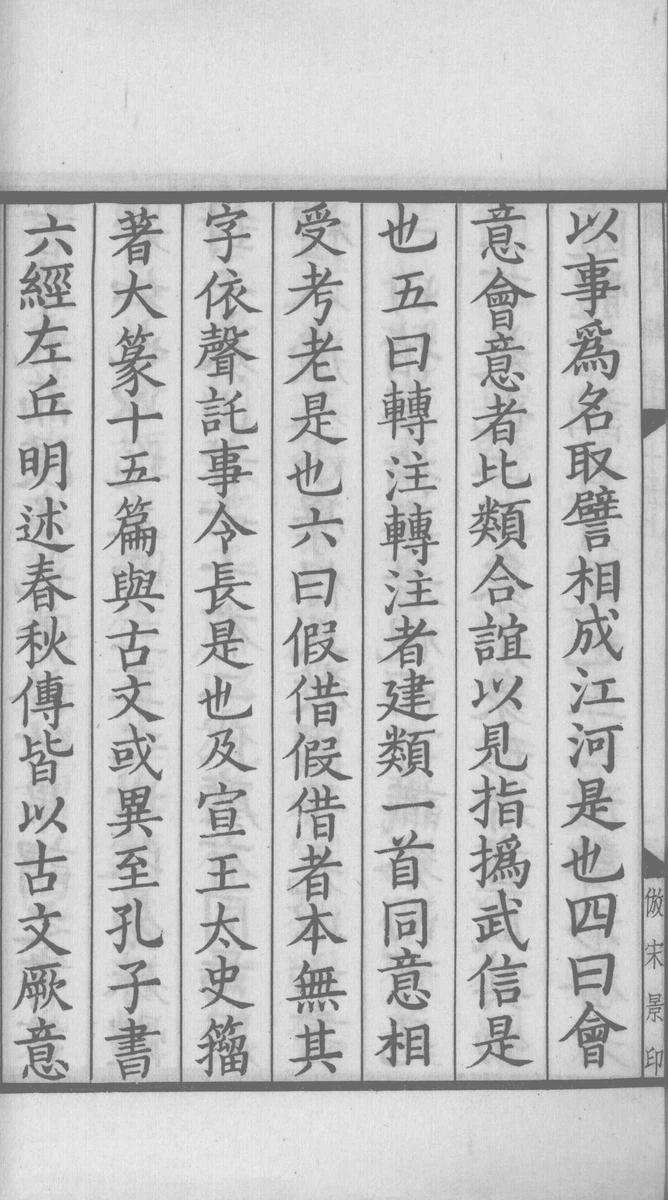 以事爲名取譬相成江河是也四曰會
意會意者比類合誼以見指撝武信是
也五曰轉注轉注者建類一首同意相
受考老是也六曰假借假借者本無其
字依聲託事令長是也及宣王太史籒
著大篆十五篇與古文或異至孔子書
六經左丘明述春秋傳皆以古文厥意
倣宋景印